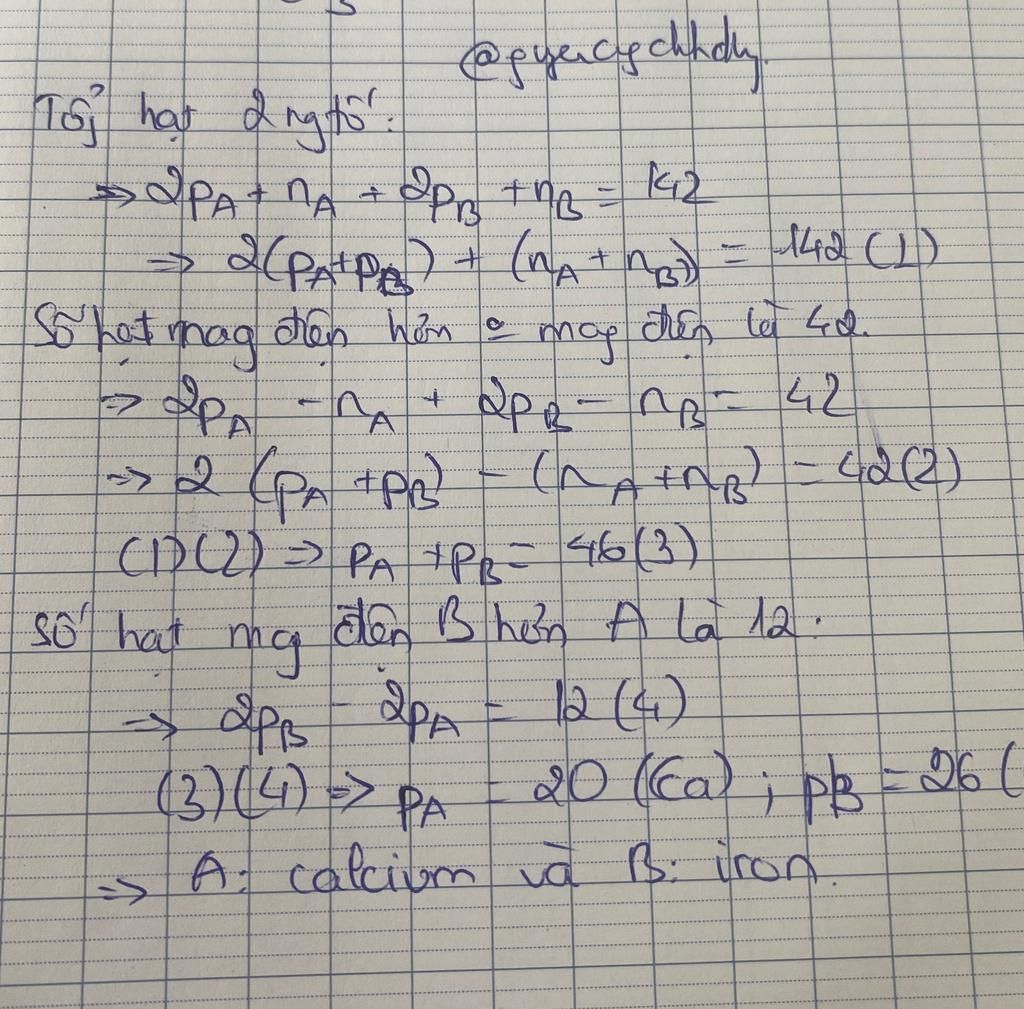 Tổg hạt 2 ngtố:
⇒ 2pA + nA + 2pB + nB = 142
⇒ 2(pA+pB) + (nA + nB) = 142 (1)
Số hạt mag điện hơn o mag điện là 42.
⇒ 2pA - nA + 2pB - nB = 42
⇒ 2 (pA + pB) - (nA + nB) = 42(2)
(1)(2) ⇒ pA + pB = 46(3)
số hạt mg điện B hơn A là 12.
⇒ 2pB - 2pA = 12 (4)
(3)(4) ⇒ pA = 20 (Ca) ; pB = 26 (
⇒ A: calcium và B: iron.